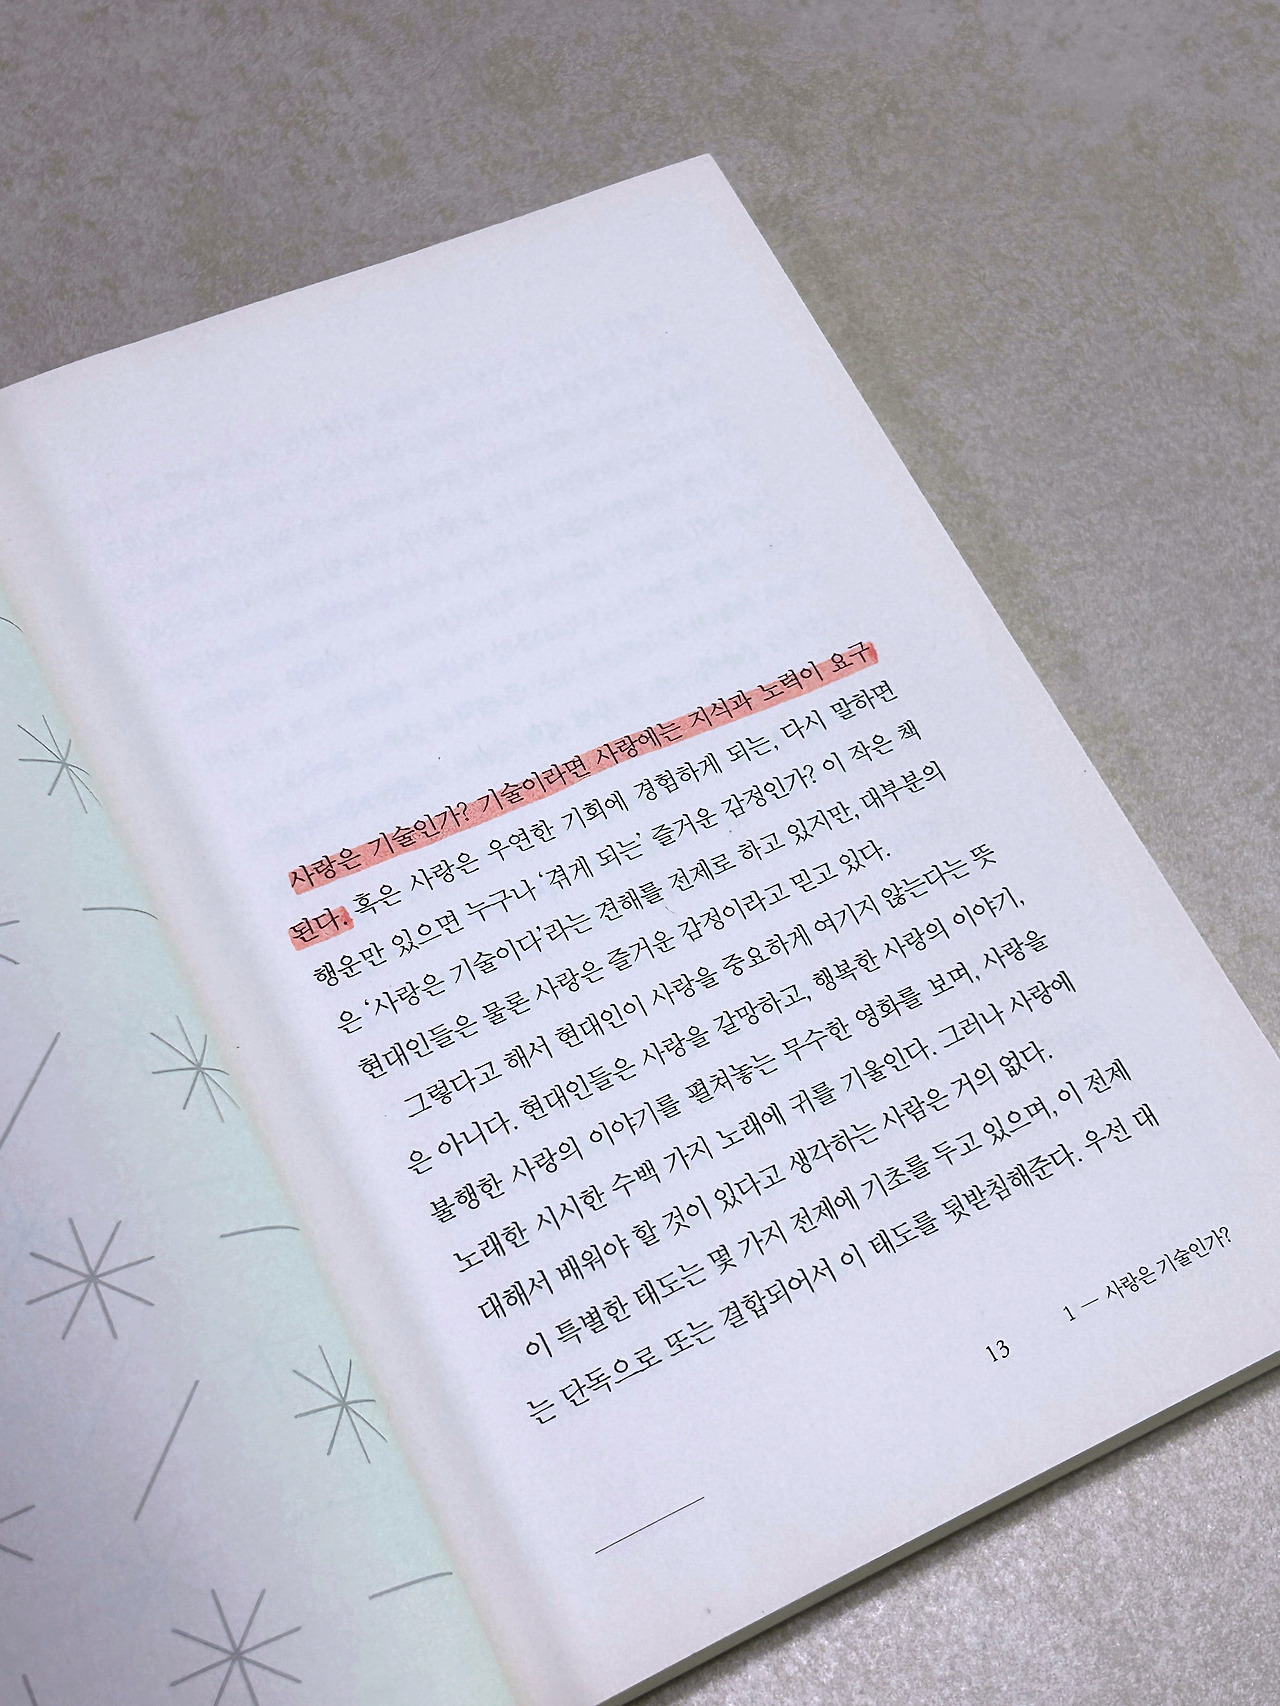 사랑은 기술인가? 기술이라면 사랑에는 지식과 노력이 요구
된다. 혹은 사랑은 우연한 기회에 경험하게 되는, 다시 말하면
행운만 있으면 누구나 ‘겪게 되는’ 즐거운 감정인가? 이 작은 책
은 ‘사랑은 기술이다’라는 견해를 전제로 하고 있지만, 대부분의
현대인들은 물론 사랑은 즐거운 감정이라고 믿고 있다.
그렇다고 해서 현대인이 사랑을 중요하게 여기지 않는다는 뜻
은 아니다. 현대인들은 사랑을 갈망하고, 행복한 사랑의 이야기,
불행한 사랑의 이야기를 펼쳐놓는 무수한 영화를 보며, 사랑을
노래한 시시한 수백 가지 노래에 귀를 기울인다. 그러나 사랑에
대해서 배워야 할 것이 있다고 생각하는 사람은 거의 없다.
이 특별한 태도는 몇 가지 전제에 기초를 두고 있으며, 이 전제
는 단독으로 또는 결합되어서 이 태도를 뒷받침해준다. 우선 대
13
1 — 사랑은 기술인가?